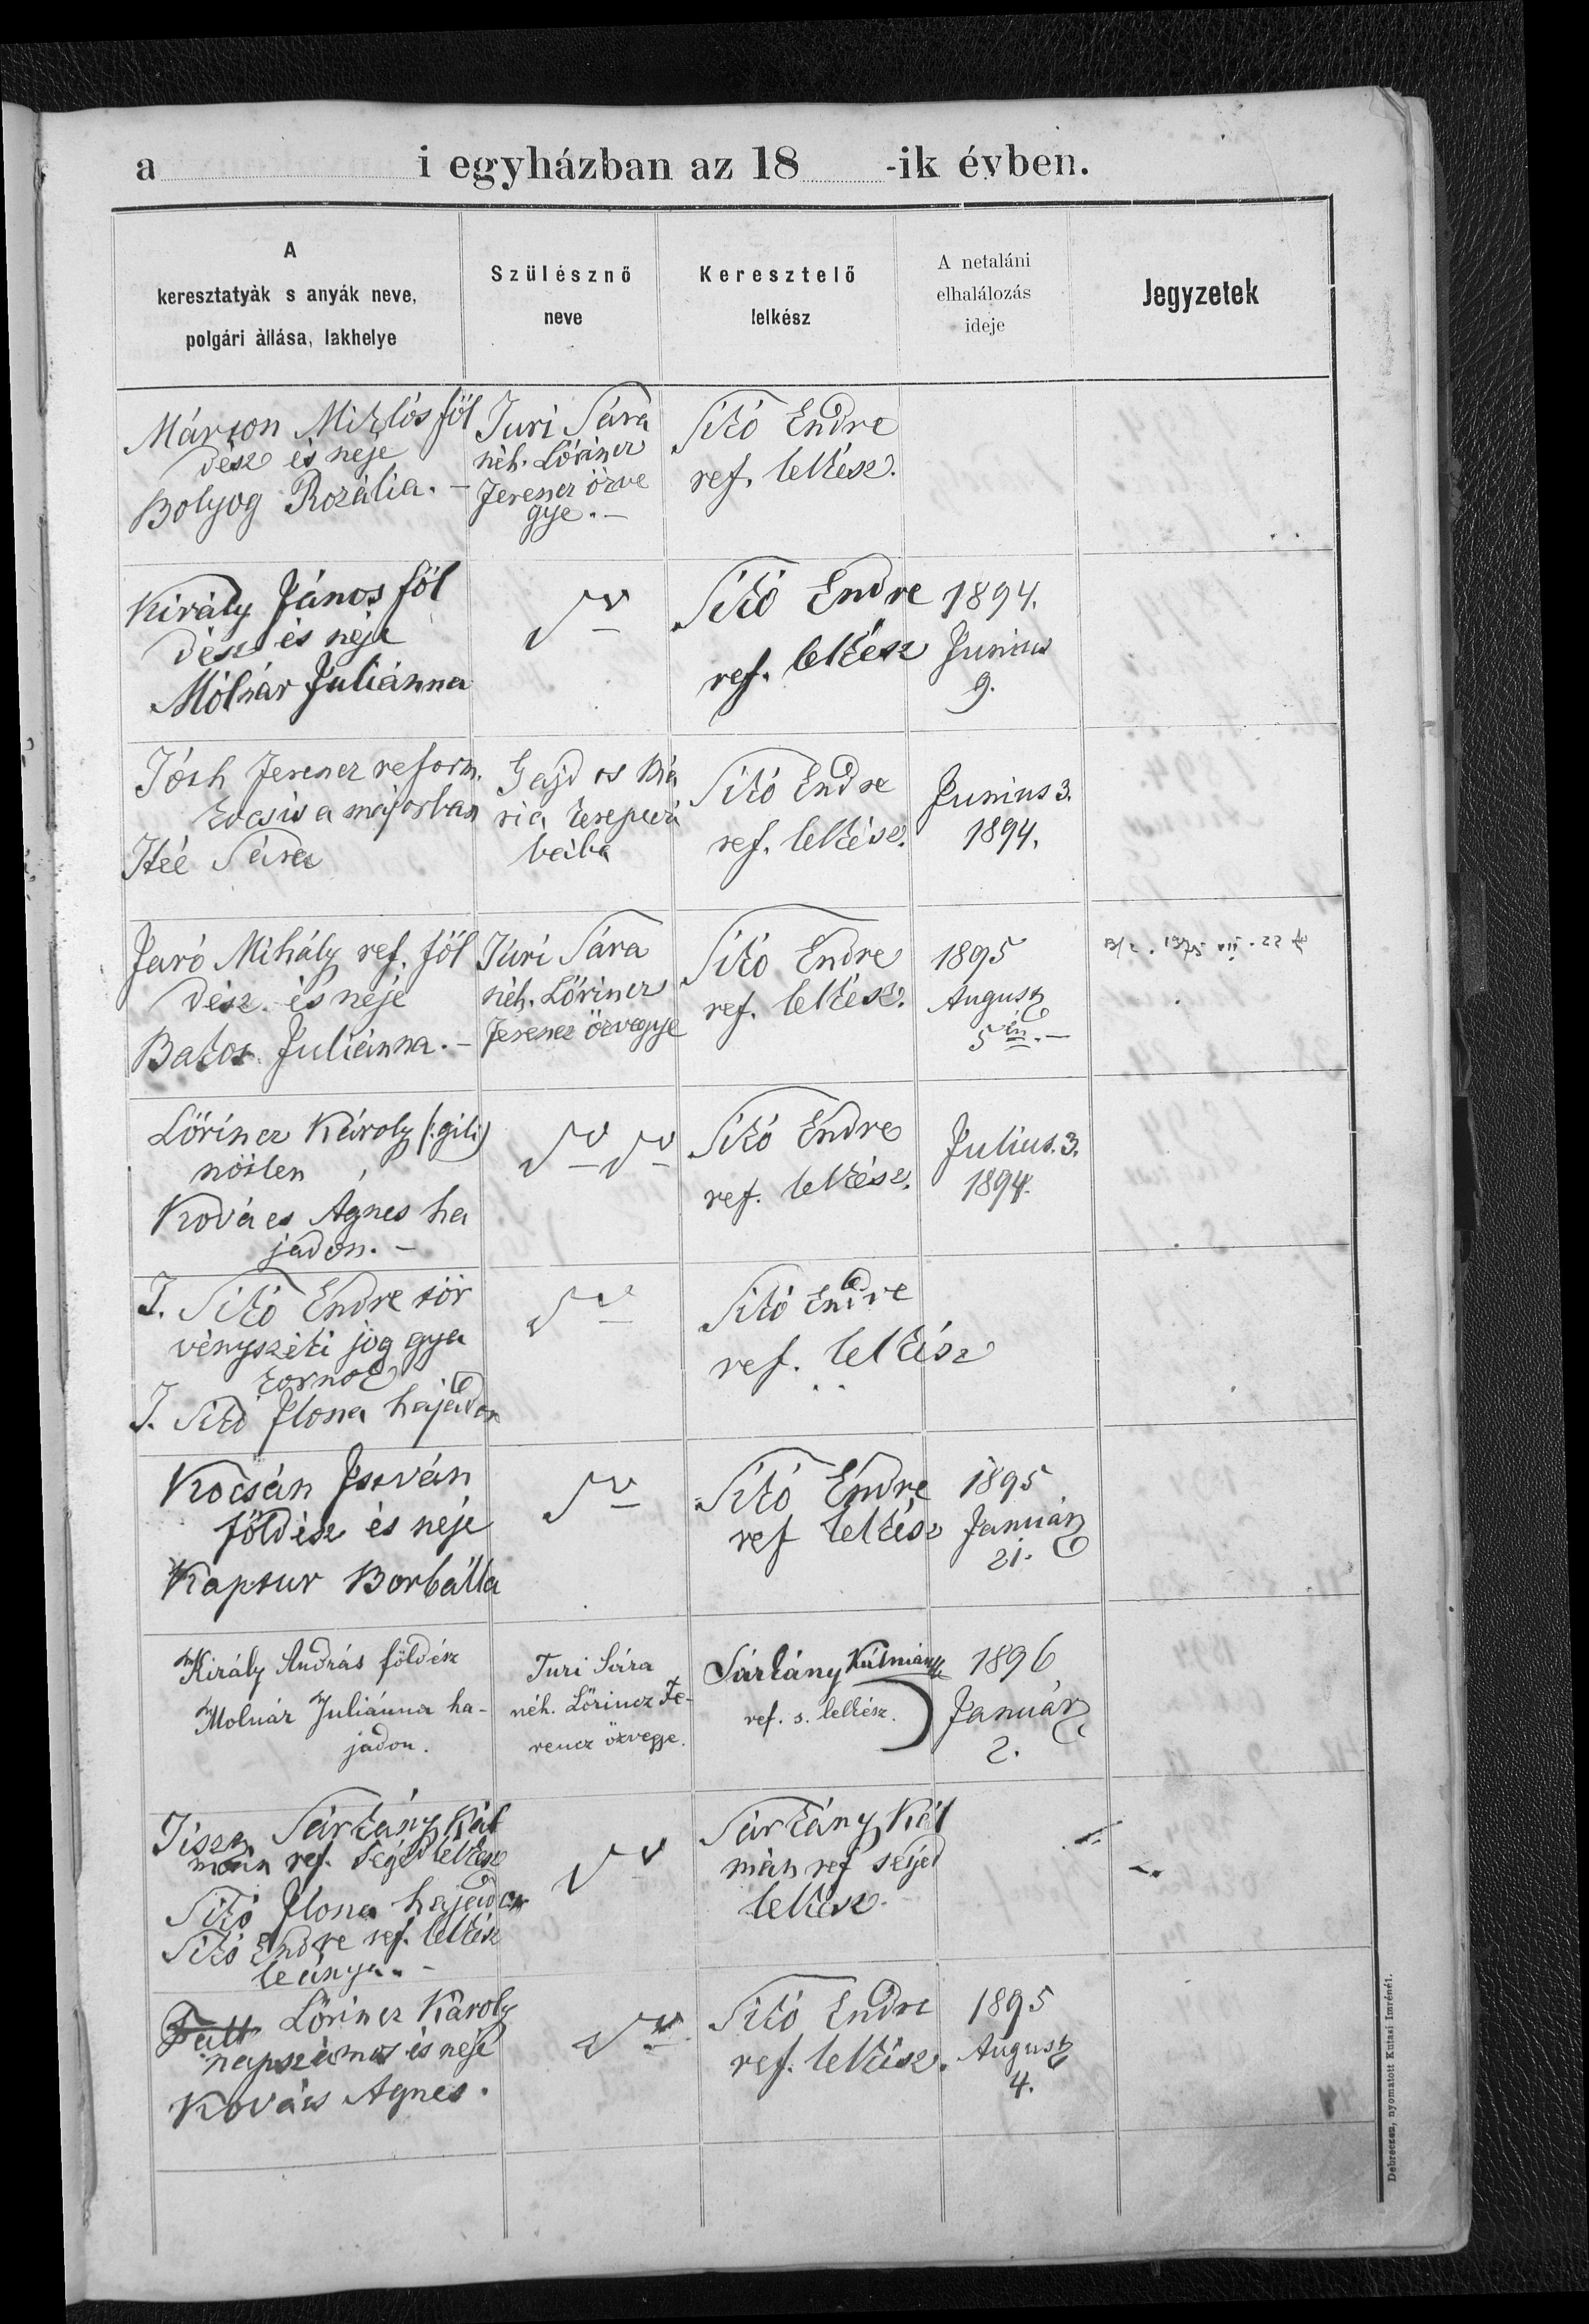 a i egyházban az 18 -ik évben.
A
keresztatyák s anyák neve,
polgári állása, lakhelye
Szülésznő
neve
Keresztelő
lelkész
A netaláni
elhalálozás
ideje
Jegyzetek
Márton Miklós föl
dész és neje
Bolyog Rozália. –
Turi Sára
néh. Lőrincz
Ferencz özve
gye. –
Sikó Endre
ref. lelkész.
Király János föl
dész és neje
Mólnár Juliánna
Sikó Endre
ref. lelkész
1894.
Junius
9.
Tóth Ferencz reform.
kocsis a majorban
Sára
Gajdos Má
ria
bába
Sikó Endre
ref. lelkész.
Junius 3.
1894.
Jaró Mihály ref. föl
dész és neje
Bakos Juliánna. –
Turi Sára
néh. Lőrincz
Ferencz özvegye
Sikó Endre
ref. lelkész.
1895
August
5 én. –
Lőrincz Károly (:gili)
nőtlen
Kovács Ágnes ha
jadon. –
Sikó Endre
ref. lelkész.
Julius. 3.
1894.
T. Sikó Endre tör
vényszéki jog gya
kornok
T. Sikó Ilona hajadon
Sikó Endre
ref. lelkész
Kocsán István
földész és neje
Kaptur Borbálla
Sikó Endre
ref lelkész
1895
Január
21.
Király András földész
Molnár Juliánna ha-
jadon.
Turi Sára
néh. Lőrincz Fe-
rencz özvegye.
Sárkány Kálmán
ref. s. lelkész.
1896
Január
2.
Tiszt. Sárkány Kál
mán ref. segéd lelkész
Sikó Ilona hajadon
Sikó Endre ref. lelkész
leánya. –
Sárkány Kál
mán ref segéd
lelkész.
Lőrincz Károly
napszámos és neje
Kovács Ágnes.
Sikó Endre
ref. lelkész.
1895
August
4.
Debreczen, nyomatott Kutasi Imrénél.